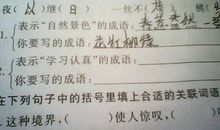 夜( 以 )继( 日 ) 一丝不( 苟 )
1.{表示“自然景色”的成语:春意盎然 一
你要写的成语:花红柳绿
2.{表示“学习认真”的成语:
你要写的成语:
在下列句子中的括号里填上合适的关联词语
.这种境界,( )使人惊叹,(